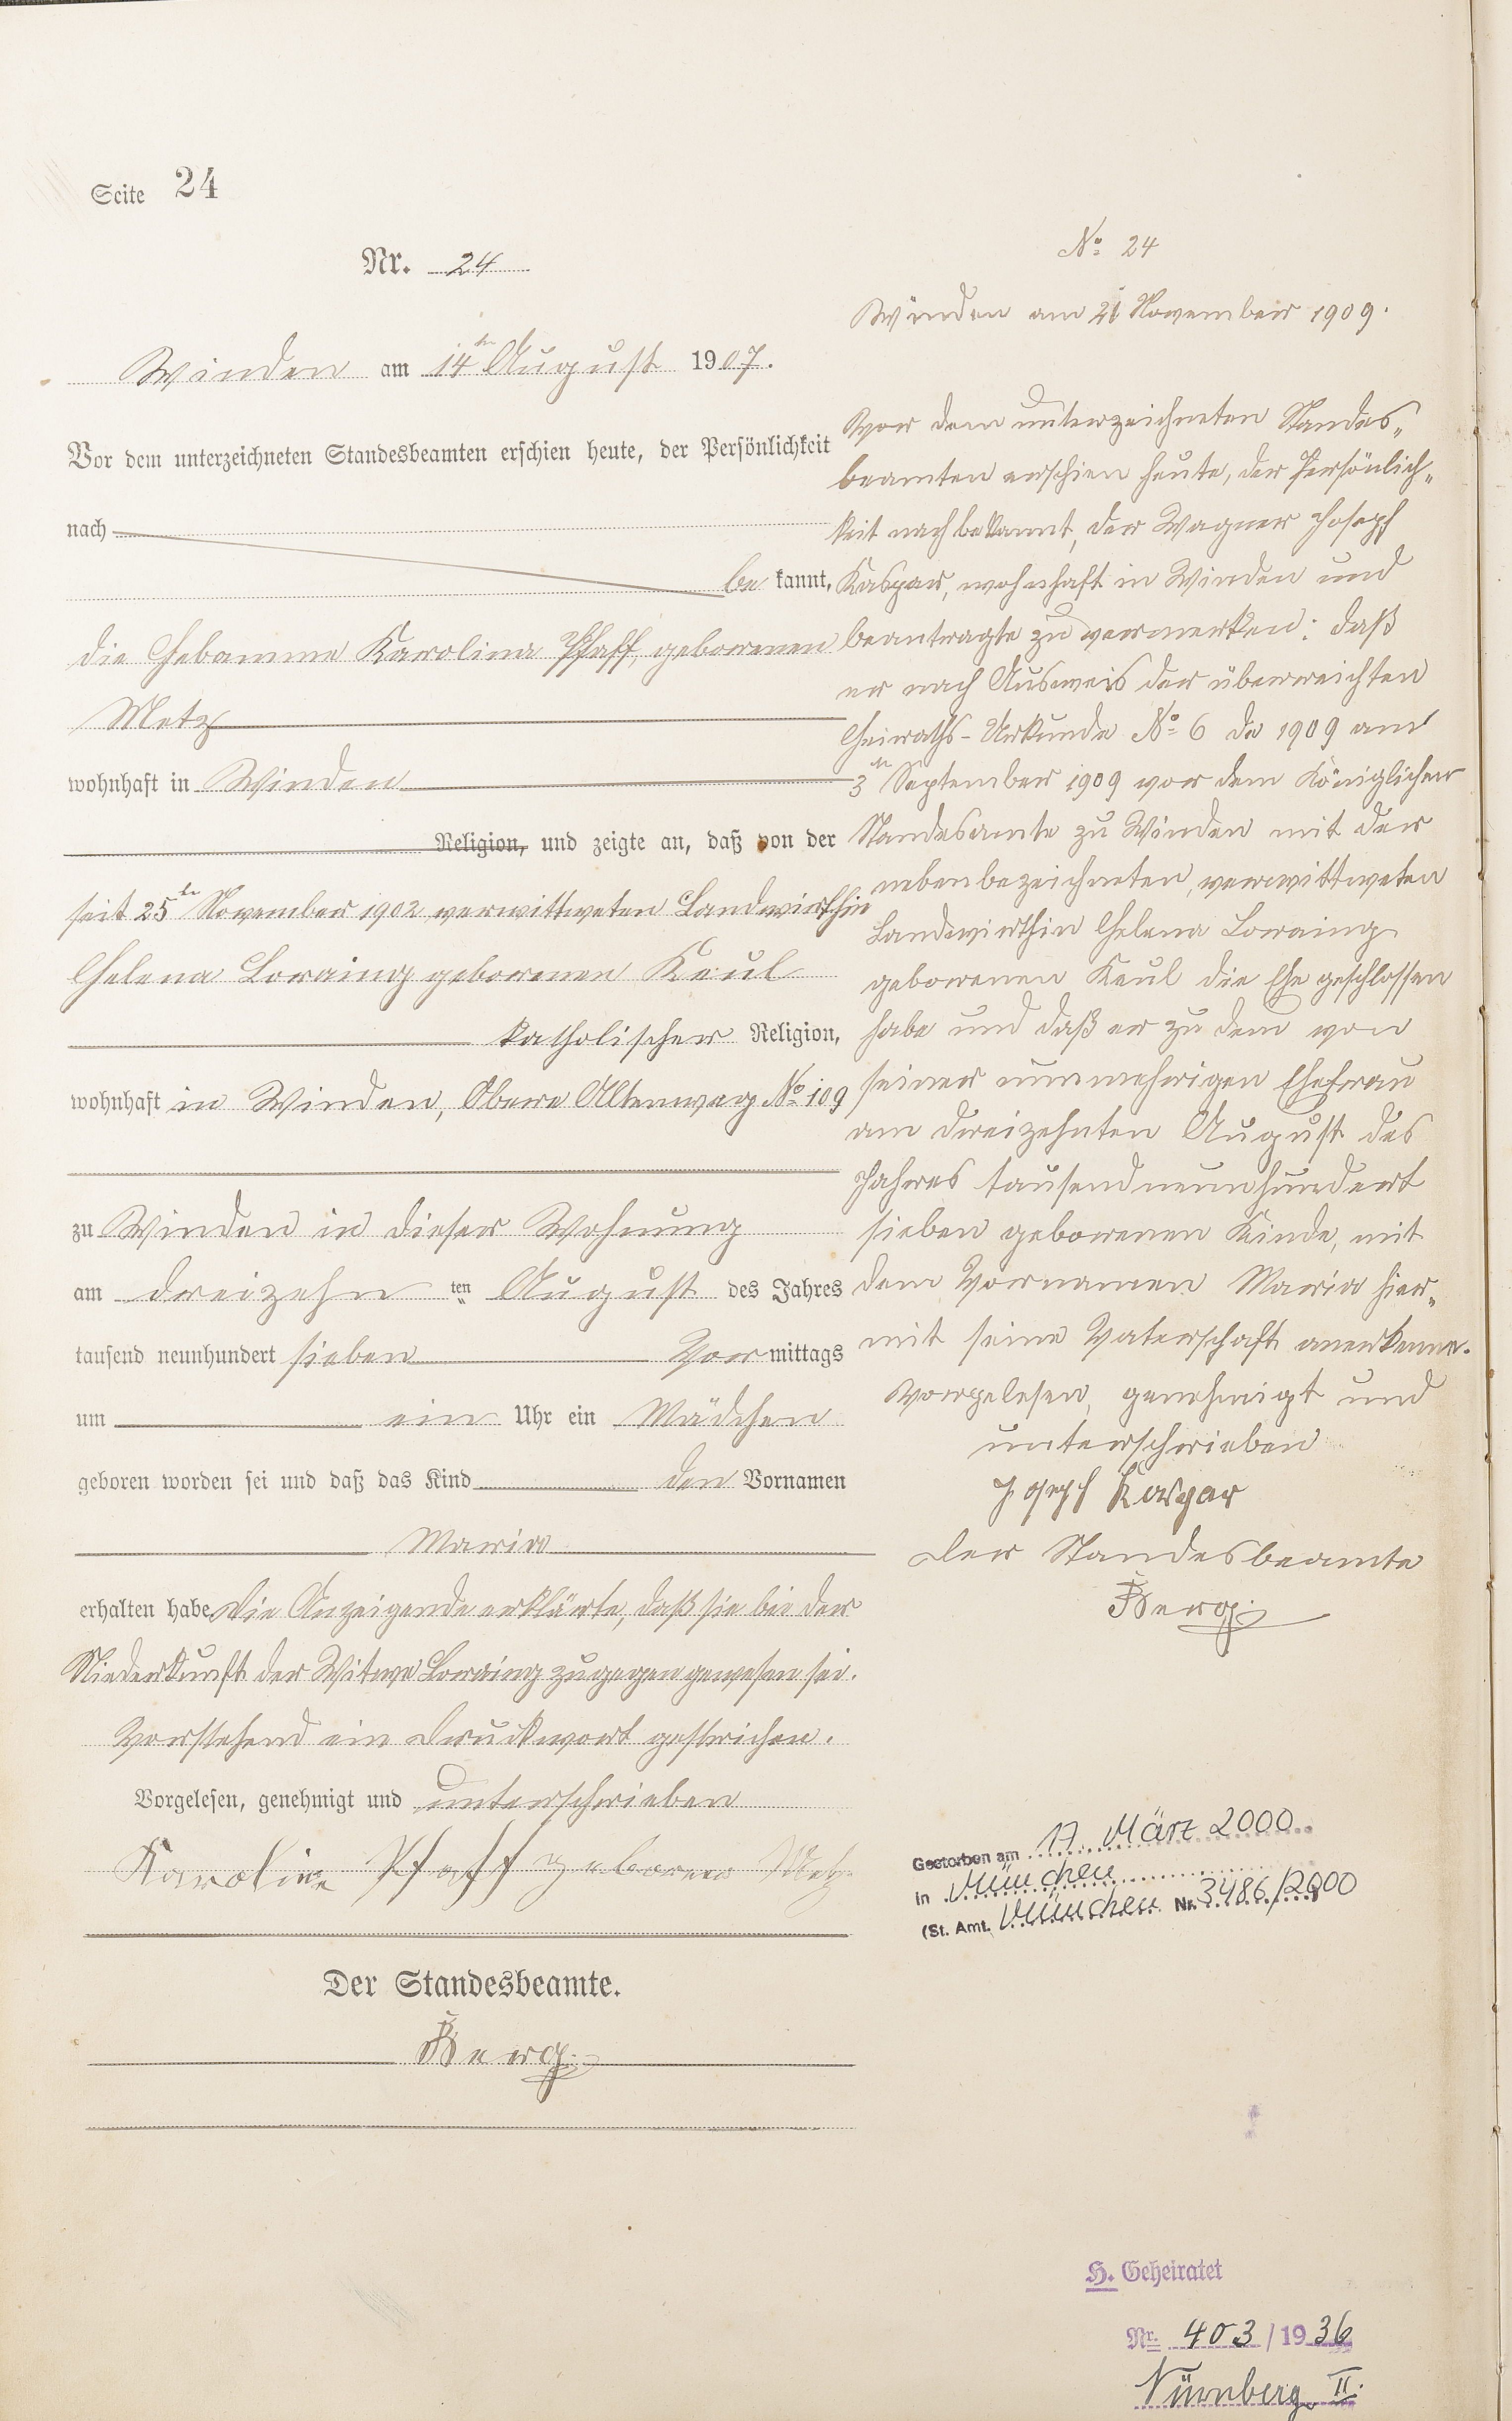 Seite 24
Nr. 24
Winden am 14ten August 1907.
Vor dem unterzeichneten Standesbeamten erschien heute, der Persönlichkeit
nach
be kannt,
die Hebamme Karolina Pfaff, geborenen
Metz
wohnhaft in Winden
Religion, und zeigte an, daß von der
seit 25ten November 1902 verwittweten Landwirthin
Helena Loraing geborenen Keul
katholischer Religion,
wohnhaft in Winden, Obere Altenweg No 109
zu Winden in dieser Wohnung
am dreizehn ten August des Jahres
tausend neunhundert sieben Vor mittags
um ein Uhr ein Mädchen
geboren worden sei und daß das Kind den Vornamen
Maria
erhalten habe. Die Anzeigende erklärte, daß sie bei der
Niederkunft der Witwe Loraing zugegen gewesen sei.
Vorstehend ein Druckwort gestrichen.
Vorgelesen, genehmigt und unterschrieben
Karoline Pfaff geborene Metz
Der Standesbeamte.
Berg.
No 24
Winden am 21 November 1909.
Vor dem unterzeichneten Standes-
beamten erschien heute, der Persönlich-
keit nach bekannt, der Wagner Joseph
Kaspar, wohnhaft in Winden und
beantragte zu vermerken: daß
er nach Ausweis der überreichten
Heiraths-Urkunde No 6 de 1909 am
3ten September 1909 vor dem Königlichen
Standesamte zu Winden mit der
nebenbezeichneten, verwittweten
Landwirthin Helena Loraing
geborenen Keul die Ehe geschlossen
habe und daß er zu dem von
seiner nunmehrigen Ehefrau
am dreizehnten August des
Jahres tausendneunhundert
sieben geborenen Kinde, mit
dem Vornamen Maria hier-
mit seine Vaterschaft anerkenne.
Vorgelesen, genehmigt und
unterschrieben
Joseph Kaspar
Der Standesbeamte
Berg.
Gestorben am 17. März 2000
in München
(St. Amt. München Nr. 3486/2000
H. Geheiratet
Nr. 403/1936
Nürnberg II.